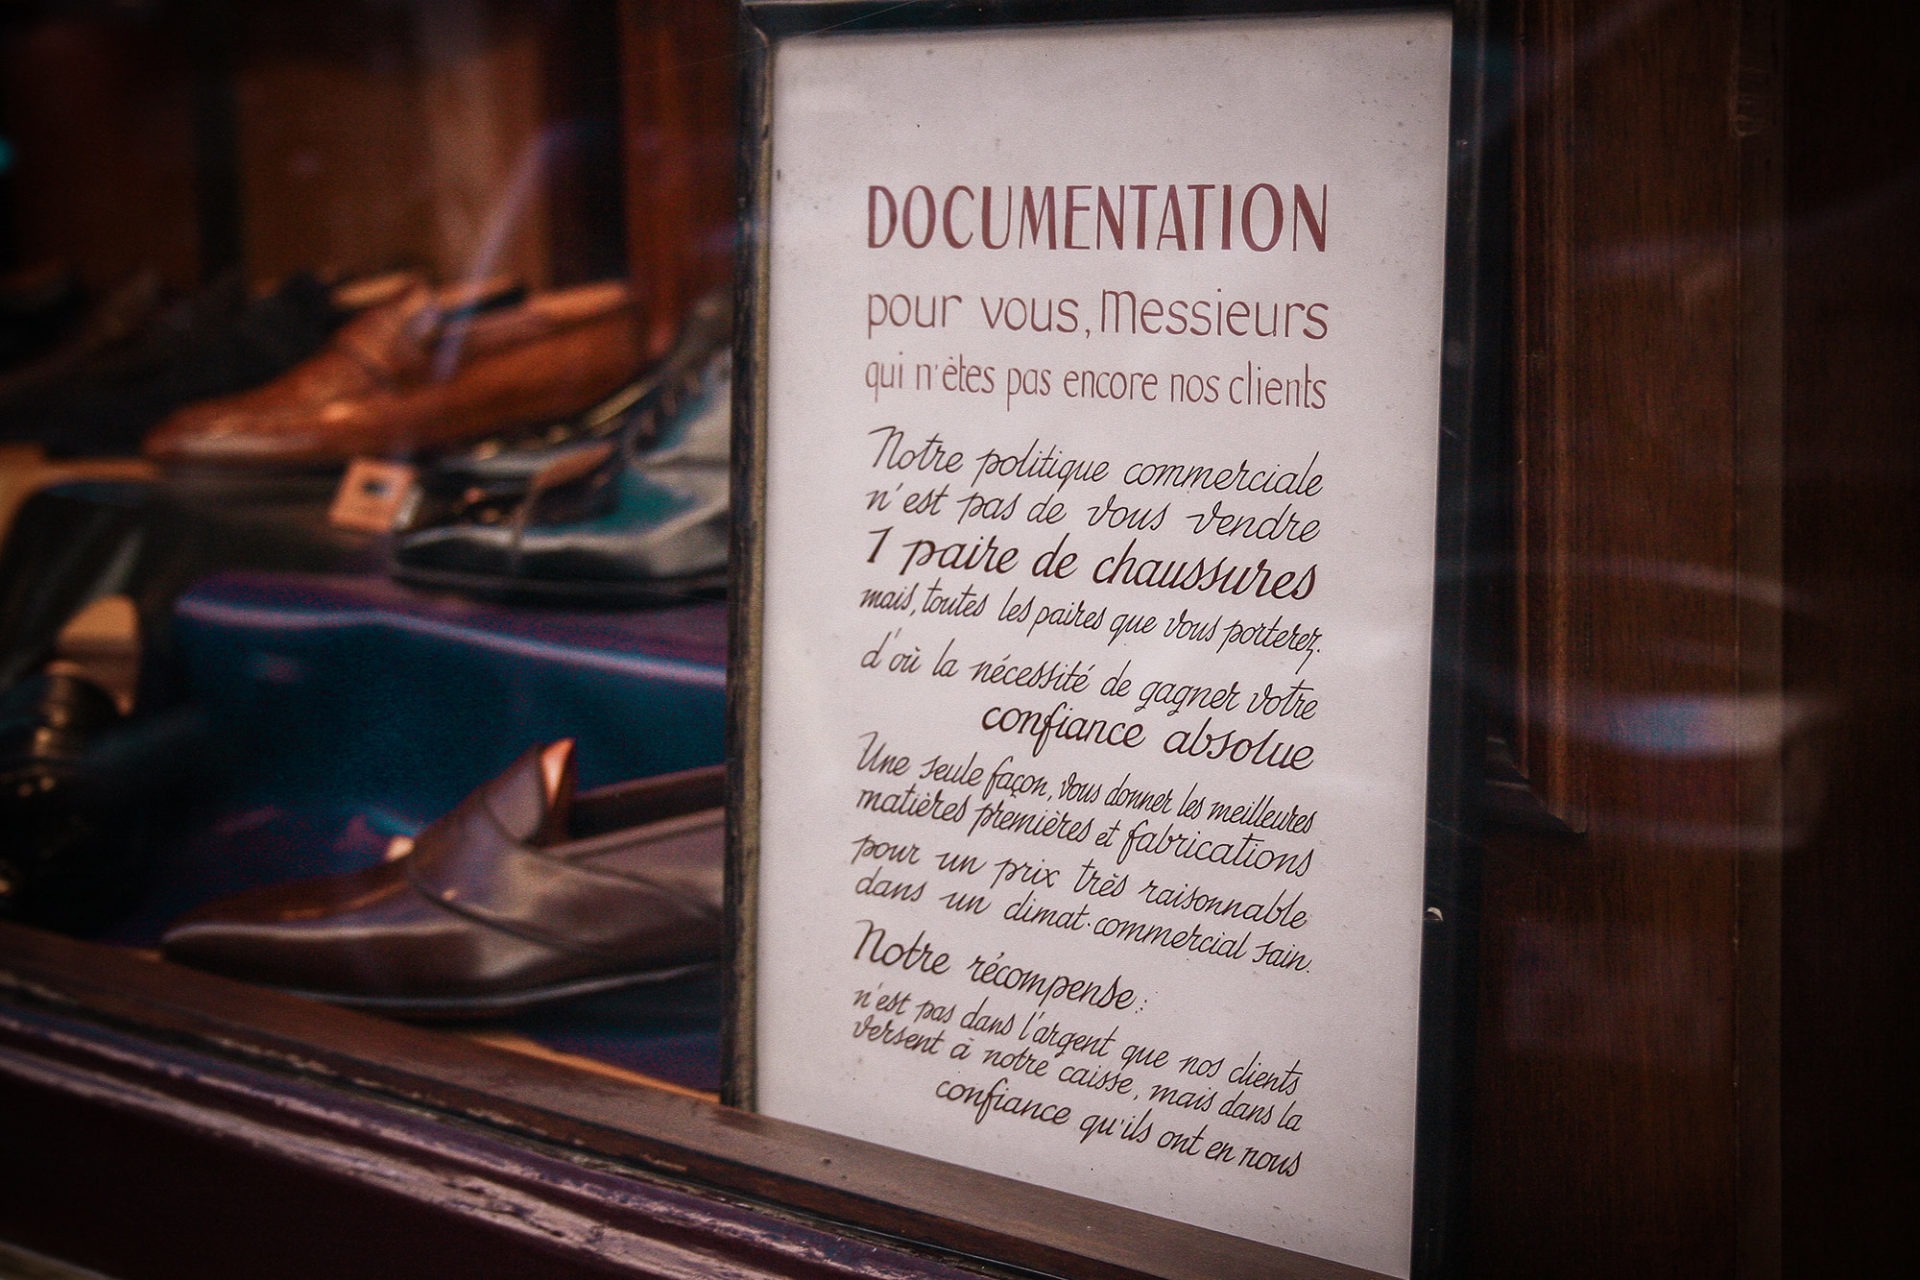 DOCUMENTATION
pour vous, Messieurs
qui n'êtes pas encore nos clients
Notre politique commerciale
n'est pas de vous vendre
1 paire de chaussures
mais, toutes les paires que vous porterez.
d'où la nécessité de gagner votre
confiance absolue
Une seule façon, vous donner les meilleures
matières premières et fabrications
pour un prix très raisonnable
dans un climat-commercial sain.
Notre récompense:
n'est pas dans l'argent que nos clients
versent à notre caisse, mais dans la
confiance qu'ils ont en nous